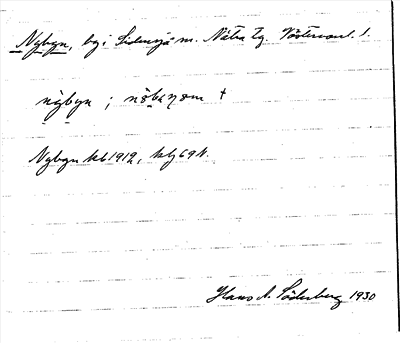 Nybyn, by i Sidensjö sn. Nätra tg. Västernorrl. l.
nybyn ; nöbynom †
Nybyn kb 1912, hfl 69 h.
Hans A. Söderberg 1930